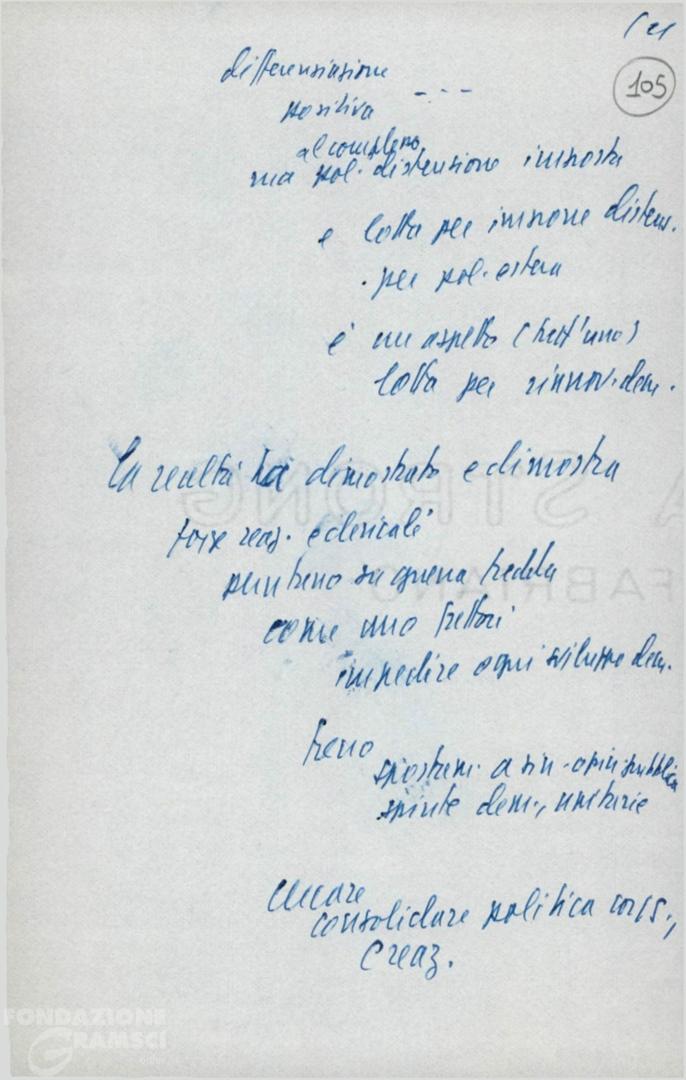 105
differenziazione
positiva - - -
al complesso
ma pol. distensione imposta
e lotta per imporre distens.
per pol. estera
è un aspetto (tutt'uno)
lotta per rinnov. dem.
la realtà ha dimostrato e dimostra
forze reaz. e clericali
puntano su guerra fredda
come uno fattori
impedire ogni sviluppo dem.
freno
spostam. a sin. opin. pubblica
spinte dem., unitarie
consolidare politica
reaz.
FONDAZIONE
GRAMSCI